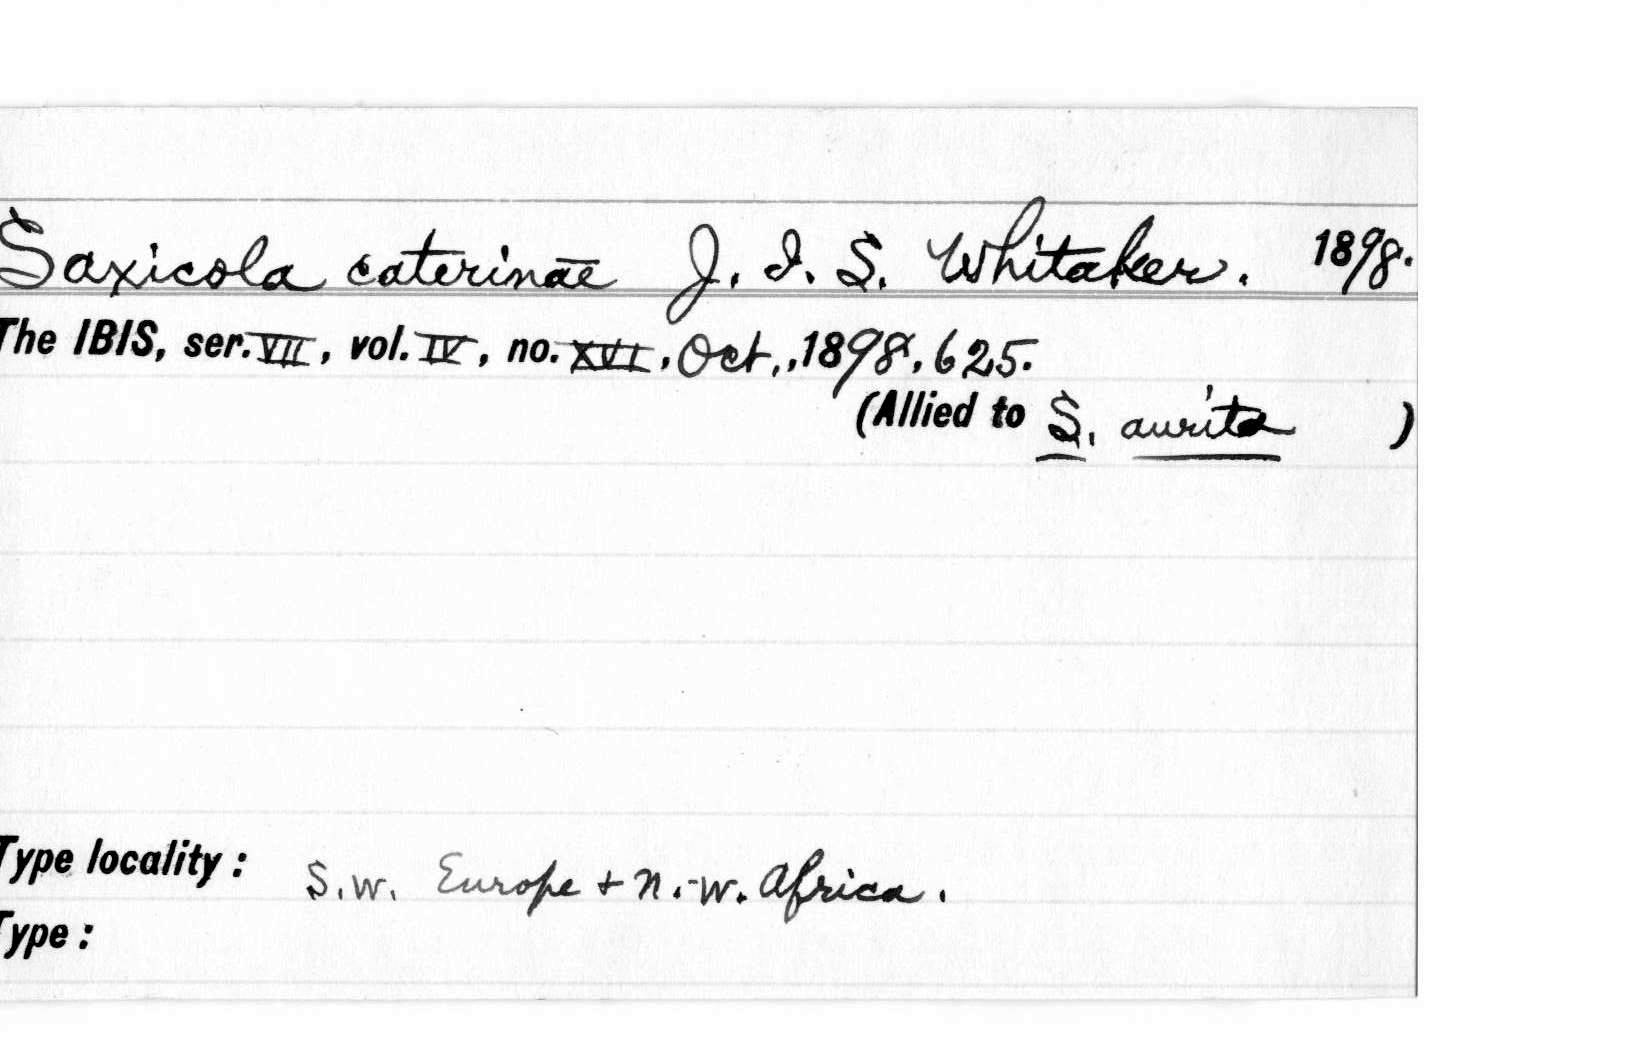 Saxicola caterinae J. I. S. Whitaker. 1898.
The IBIS, ser. VII, vol. IV, no. XVI, Oct., 1898, 625.
(Allied to S. aurita )
Type locality: S.W. Europe + N.-W. Africa.
Type: